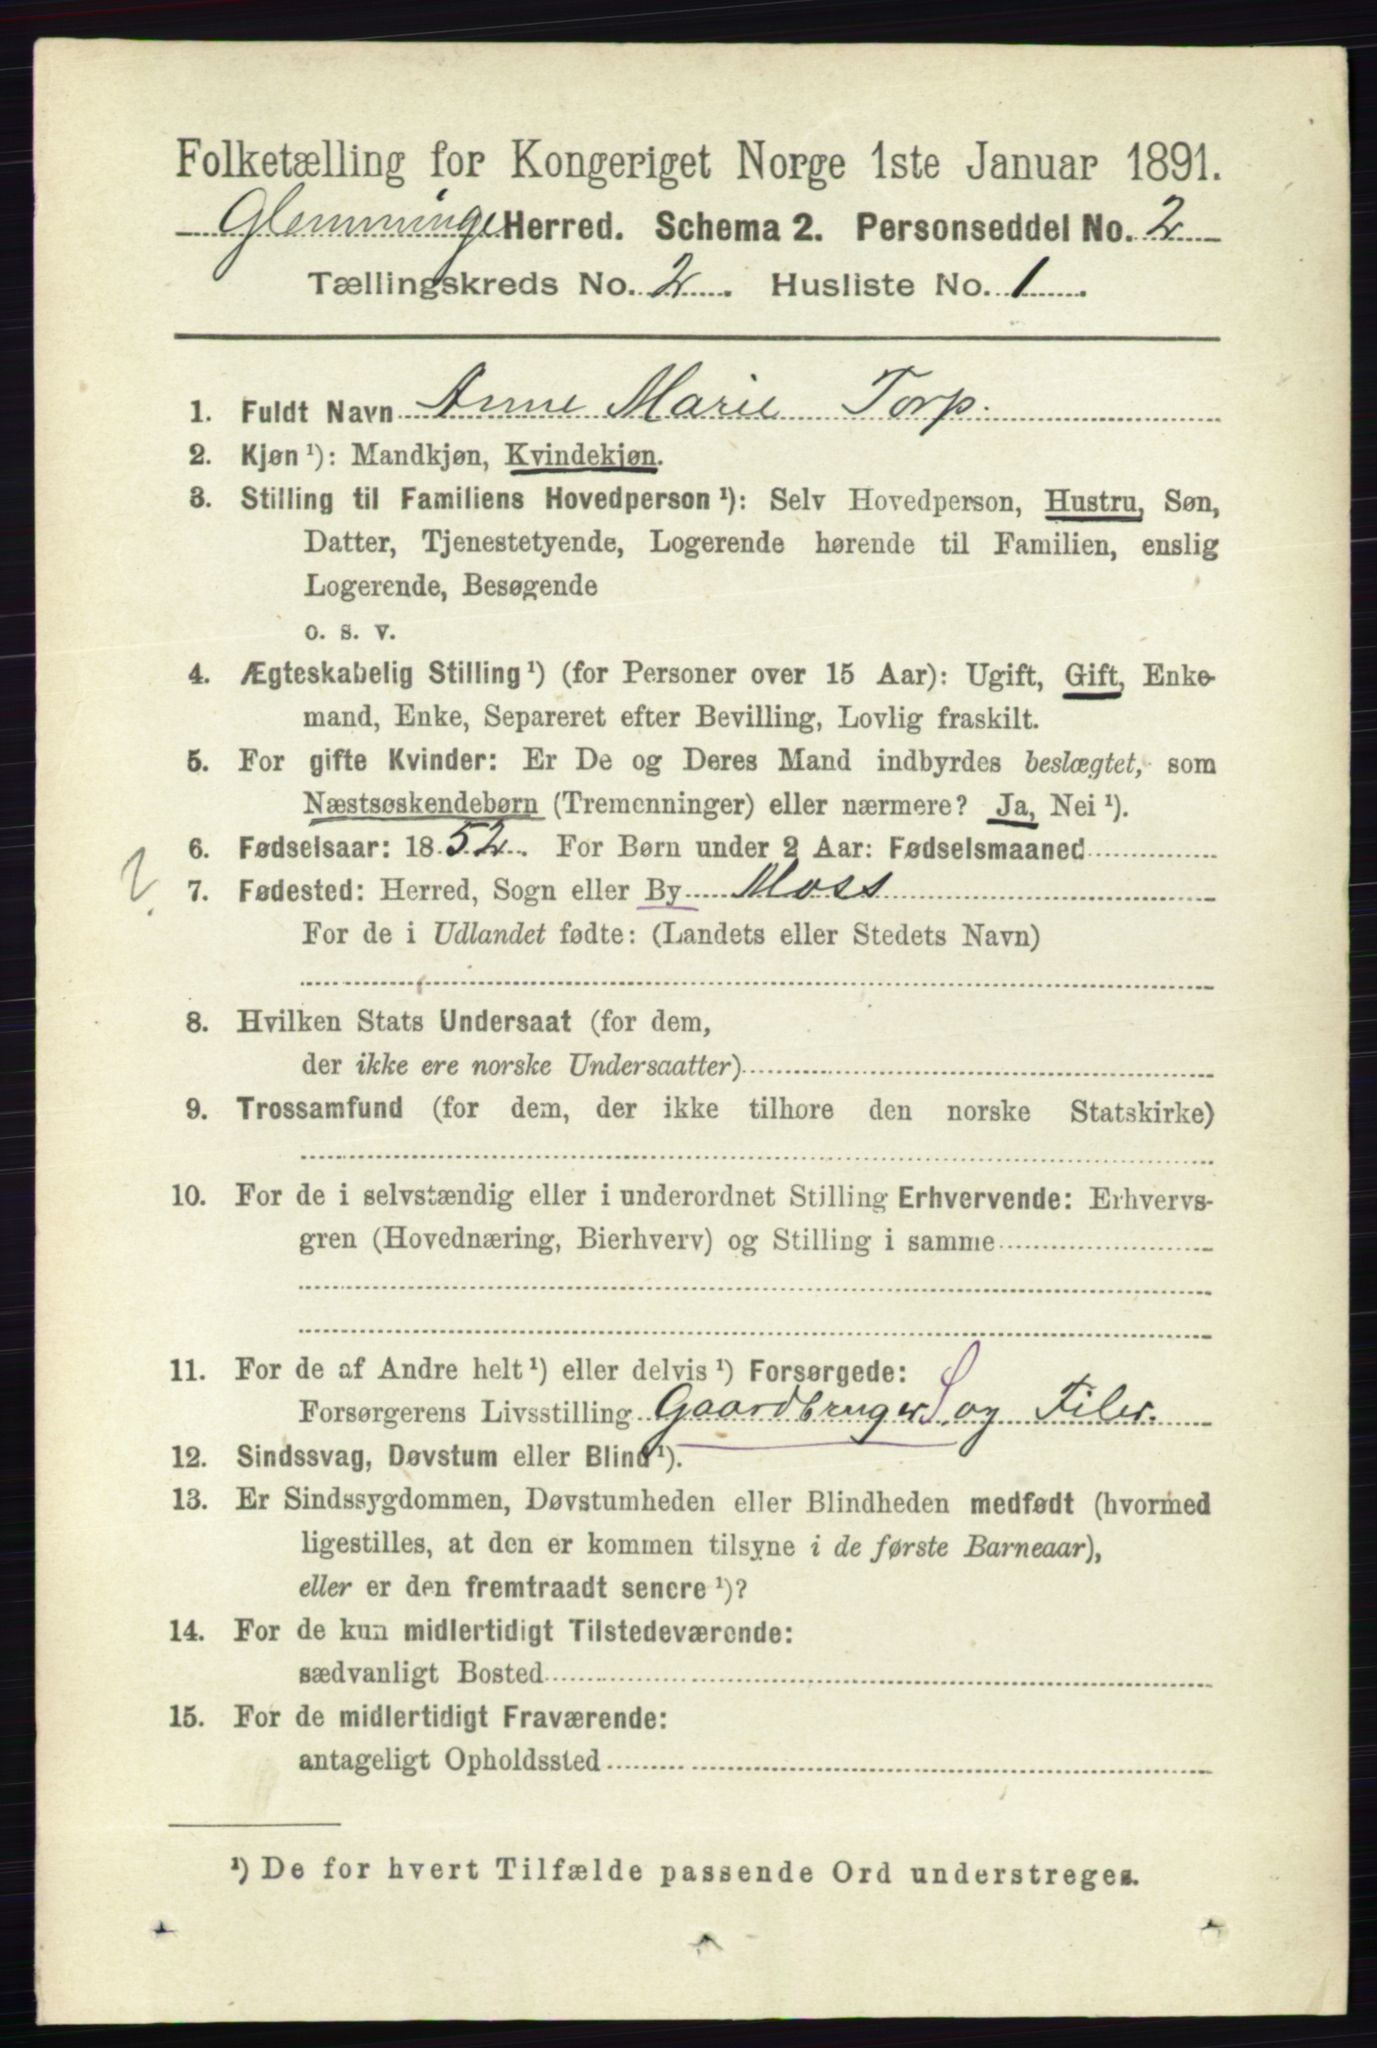 Folketælling for Kongeriget Norge 1ste Januar 1891.
Glemminge Herred. Schema 2. Personseddel No. 2
Tællingskreds No. 2. Husliste No. 1.
1. Fuldt Navn Anne Marie Torp.
2. Kjøn ¹): Mandkjøn, Kvindekjøn.
3. Stilling til Familiens Hovedperson ¹): Selv Hovedperson, Hustru, Søn,
Datter, Tjenestetyende, Logerende hørende til Familien, enslig
Logerende, Besøgende
o. s. v.
4. Ægteskabelig Stilling ¹) (for Personer over 15 Aar): Ugift, Gift, Enke-
mand, Enke, Separeret efter Bevilling, Lovlig fraskilt.
5. For gifte Kvinder: Er De og Deres Mand indbyrdes beslægtet, som
Næstsøskendebørn (Tremenninger) eller nærmere? Ja, Nei ¹).
6. Fødselsaar: 1852. For Børn under 2 Aar: Fødselsmaaned
7. Fødested: Herred, Sogn eller By Moss
For de i Udlandet fødte: (Landets eller Stedets Navn)
8. Hvilken Stats Undersaat (for dem,
der ikke ere norske Undersaatter)
9. Trossamfund (for dem, der ikke tilhøre den norske Statskirke)
10. For de i selvstændig eller i underordnet Stilling Erhvervende: Erhvervs-
gren (Hovednæring, Bierhverv) og Stilling i samme
11. For de af Andre helt ¹) eller delvis ¹) Forsørgede:
Forsørgerens Livsstilling Gaardbruger S og Filer.
12. Sindssvag, Døvstum eller Blind ¹).
13. Er Sindssygdommen, Døvstumheden eller Blindheden medfødt (hvormed
ligestilles, at den er kommen tilsyne i de første Barneaar),
eller er den fremtraadt senere ¹)?
14. For de kun midlertidigt Tilstedeværende:
sædvanligt Bosted
15. For de midlertidigt Fraværende:
antageligt Opholdssted
¹) De for hvert Tilfælde passende Ord understreges.